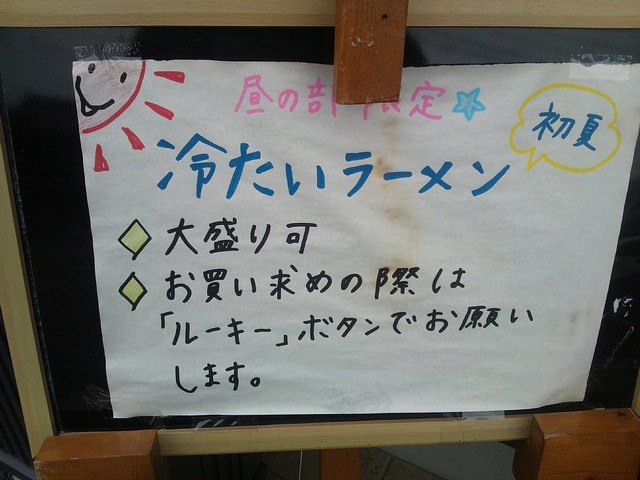 昼の部限定
初夏
冷たいラーメン
大盛り可
お買い求めの際は
「ルーキー」ボタンでお願い
します。